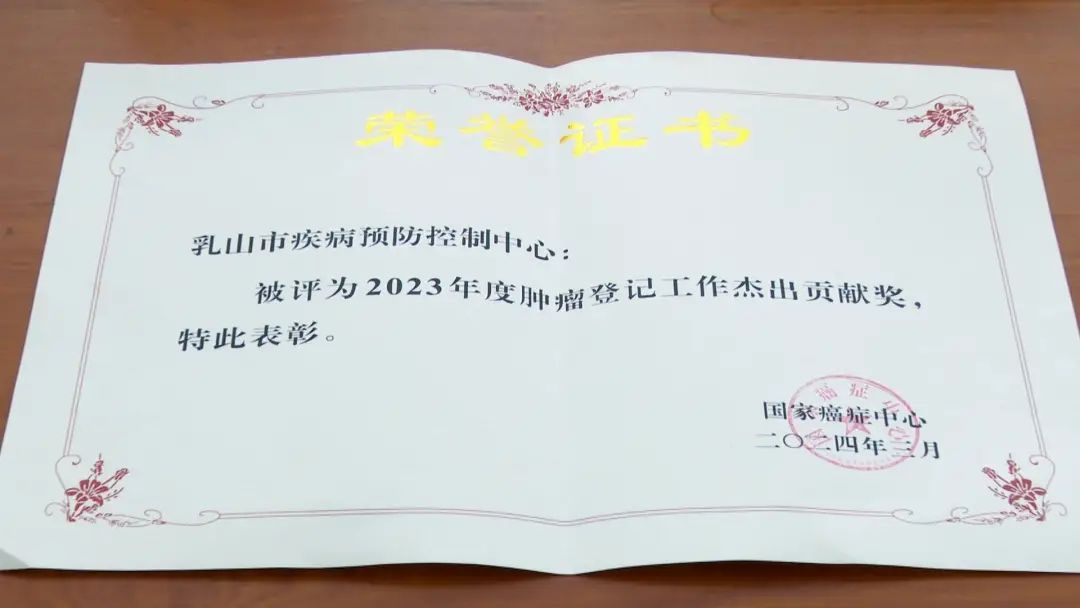 荣誉证书
乳山市疾病预防控制中心：
被评为2023年度肿瘤登记工作杰出贡献奖，
特此表彰。
国家癌症中心
二〇二四年三月